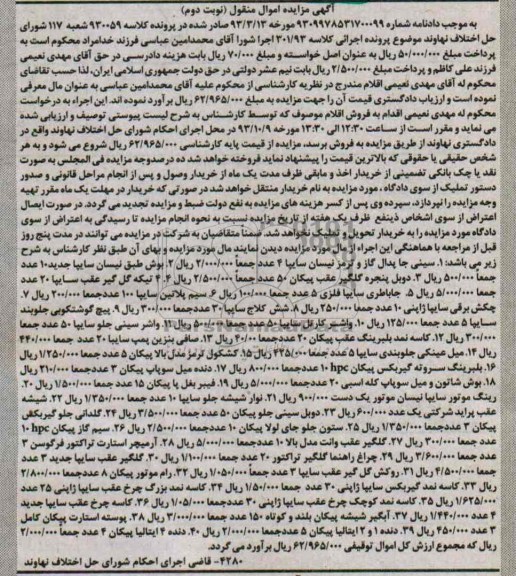 آگهی مزایده اموال منقول (نوبت دوم)
به موجب دادنامه شماره ۹۳۰۹۹۷۸۵۳۱۷۰۰۰۹۹ مورخه ۹۳/۳/۱۳ صادر شده در پرونده کلاسه ۹۳۰۰۵۹ شعبه ۱۱۷ شورای
حل اختلاف نهاوند موضوع پرونده اجرائی کلاسه ۳۰۱/۹۳ اجرا شورا آقای محمدامین عباسی فرزند خدامراد محکوم است به
پرداخت مبلغ ۵۰/۰۰۰/۰۰۰ ریال به عنوان اصل خواسته و مبلغ ۷۰/۰۰۰ ریال بابت هزینه دادرسی در حق آقای مهدی نعیمی
فرزند علی کاظم و پرداخت مبلغ ۲/۵۰۰/۰۰۰ ریال بابت نیم عشر دولتی در حق دولت جمهوری اسلامی ایران، لذا حسب تقاضای
محکوم له آقای مهدی نعیمی اقلام مندرج در نظریه کارشناسی از محکوم علیه آقای محمدامین عباسی به عنوان مال معرفی
نموده است و ارزیاب دادگستری قیمت آن را جهت مزایده به مبلغ ۶۲/۹۶۵/۰۰۰ ریال برآورد نموده اند. این اجراء به درخواست
محکوم له مهدی نعیمی اقدام به فروش اقلام موصوف که توسط کارشناس به شرح لیست پیوستی توصیف و ارزیابی شده
می نماید و مقرر است از ساعت ۱۲:۳۰ الی ۱۳:۳۰ مورخه ۹۳/۱۰/۹ در محل اجرای احکام شورای حل اختلاف نهاوند واقع در
دادگستری نهاوند از طریق مزایده به فروش برسد، مزایده از قیمت پایه کارشناسی ۶۲/۹۶۵/۰۰۰ ریال شروع می شود و به هر
شخص حقیقی یا حقوقی که بالاترین قیمت را پیشنهاد نماید فروخته خواهد شد ده درصدوجه مزایده فی المجلس به صورت
نقد یا چک بانکی تضمینی از خریدار اخذ و مابقی ظرف مدت یک ماه از خریدار وصول و پس از انجام مراحل قانونی و صدور
دستور تملیک از سوی دادگاه، مورد مزایده به نام خریدار منتقل خواهد شد در صورتی که خریدار در مهلت یک ماه مقرر تهیه
وجه مزایده را نپردازد، سپرده وی پس از کسر هزینه های مزایده به نفع دولت ضبط و مزایده تجدید می گردد. در صورت ایصال
اعتراض از سوی اشخاص ذینفع ظرف یک هفته از تاریخ مزایده نسبت به نحوه انجام مزایده تا رسیدگی به اعتراض از سوی
دادگاه مورد مزایده را به خریدار تحویل و تملیک نخواهد شد. ضمناً متقاضیان به شرکت در مزایده می توانند در مدت پنج روز
قبل از مراجعه با هماهنگی این اجراء از مال مورد مزایده دیدن نمایند مال مورد مزایده و بهای آن طبق نظر کارشناس به شرح
زیر می باشد: ۱. سینی جا پدال گاز و ترمز نیسان سایپا ۴ عدد جمعاً ۲/۰۰۰/۰۰۰ ریال ۲. بوش طبق نیسان سایپا جدید۱۰ عدد
جمعاً ۵۰۰/۰۰۰ ریال ۳. دوبل پنجره گلگیر عقب پیکان ۵۰ عددجمعاً ۲/۵۰۰/۰۰۰ ریال ۴. ۴ تیکه گل گیر عقب سایپا ۲۰ عدد
جمعا ۵/۰۰۰/۰۰۰ ریال ۵. جاباطری سایپا فلزی ۵ عدد جمعا ۱۰۰/۰۰۰ ریال ۶. سیم پلاتین سایپا ۱۰۰ عددجمعا ۲۰۰/۰۰۰ ریال ۷.
چکش برقی سایپا ژاپنی ۱۰ عدد جمعا ۲۵۰/۰۰۰ ریال ۸. شش کلاج سایپا ۳۰ عددجمعا ۳۰۰/۰۰۰ ریال ۹. پیچ گوشتکوبی جلوبند
سایپا ۵ عدد جمعا ۱۲۵/۰۰۰ ریال ۱۰. واشر کارتل سایپا ۵ عدد جمعا ۱۰۰/۰۰۰ ریال ۱۱. واشر سینی جلو سایپا ۵۰ عدد جمعا
۳۰۰/۰۰۰ ریال ۱۲. کاسه نمد بلبرینگ عقب پیکان ۲۰ عددجمعا ۴۰۰/۰۰۰ ریال ۱۳. صافی بنزین پمپ سایپا ۲۰ عدد جمعا ۴۴۰/۰۰۰
ریال ۱۴. میل عینکی جلوبندی سایپا ۵ عددجمعا ۴۲۵/۰۰۰ ریال ۱۵. کشکول ترمز مدل بالا پیکان ۵ عددجمعا ۱/۲۵۰/۰۰۰ ریال
۱۶. بلبرینگ سروته گیربکس پیکان hpc ۱۰ عددجمعا ۸۰۰/۰۰۰ ریال ۱۷. دنده میل سوپاپ پیکان ۳ عددجمعا ۲۱۰/۰۰۰ ریال
۱۸. بوش شاتون و میل سوپاپ کله اسبی ۲۰ عددجمعا ۵/۰۰۰/۰۰۰ ریال ۱۹. فیبر بغل یا پیکان ۱۵ عدد جمعا ۱/۵۰۰/۰۰۰ ریال ۲۰.
رینگ موتور سایپا نیسان موتور یک دست ۹۰۰/۰۰۰ ریال ۲۱. نوار شیشه جلو سایپا ۱۰ عدد جمعا ۱/۳۵۰/۰۰۰ ریال ۲۲. شیشه
عقب پراید شرکتی یک عدد ۶۰۰/۰۰۰ ریال ۲۳. دوبل سینی جلو پیکان ۵۰ عدد جمعا ۳/۵۰۰/۰۰۰ ریال ۲۴. گلدانی جلو گیربکفی
پیکان ۳ عددجمعا ۱/۳۵۰/۰۰۰ ریال ۲۵. ستون جلو جای لولا پیکان ۱۰ عددجمعا ۲/۵۰۰/۰۰۰ ریال ۲۶. سیم گاز پیکان hpc ۱۰
عدد جمعا ۳۰۰/۰۰۰ ریال ۲۷. گلگیر عقب وانت مدل بالا ۱۰ عددجمعا ۵/۰۰۰/۰۰۰ ریال ۲۸. آرمیچر استارت تراکتور فرگوسن ۳
عدد جمعا ۳/۶۰۰/۰۰۰ ریال ۲۹. چراغ راهنما گلگیر تراکتور ۲۰ عدد جمعا ۱/۱۰۰/۰۰۰ ریال ۳۰. گلگیر عقب سایپا جدید ۳ عدد
جمعا ۴/۵۰۰/۰۰۰ ریال ۳۱. روکش گل گیر عقب سایپا ۳ عدد جمعاً ۱/۰۵۰/۰۰۰ ریال ۳۲. رام موتور پیکان ۸ عددجمعا ۲/۸۰۰/۰۰۰
ریال ۳۳. کاسه نمد گیربکس سایپا ژاپنی ۳۰ عدد جمعا ۱/۵۰۰/۰۰۰ ریال ۳۴. کاسه نمد بزرگ چرخ عقب سایپا ژاپنی ۲۵ عدد
۱/۶۲۵/۰۰۰ ریال ۳۵. کاسه نمد کوچک چرخ عقب سایپا ژاپنی ۳۰ عددجمعا ۱/۰۵۰/۰۰۰ ریال ۳۶. کاسه چرخ عقب سایپا جدید
۴ عدد ۱/۴۴۰/۰۰۰ ریال ۳۷. آبگیر شیشه پیکان بلند و کوتاه ۱۵۰ عدد جمعا ۳/۰۰۰/۰۰۰ ریال ۳۸. پوسته استارت پیکان کامل
۳ عدد ۴۵۰/۰۰۰ ریال ۳۹. دنده ۱ و ۲ ایتالیا پیکان ۵ عددجمعا ۲/۰۰۰/۰۰۰ ریال ۴۰. دنده ۴ ایتالیا پیکان ۴ عدد جمعاً ۲/۰۰۰/۰۰۰
ریال که مجموع ارزش کل اموال توقیفی ۶۲/۹۶۵/۰۰۰ ریال برآورد می گردد.
۴۲۸۰- قاضی اجرای احکام شورای حل اختلاف نهاوند